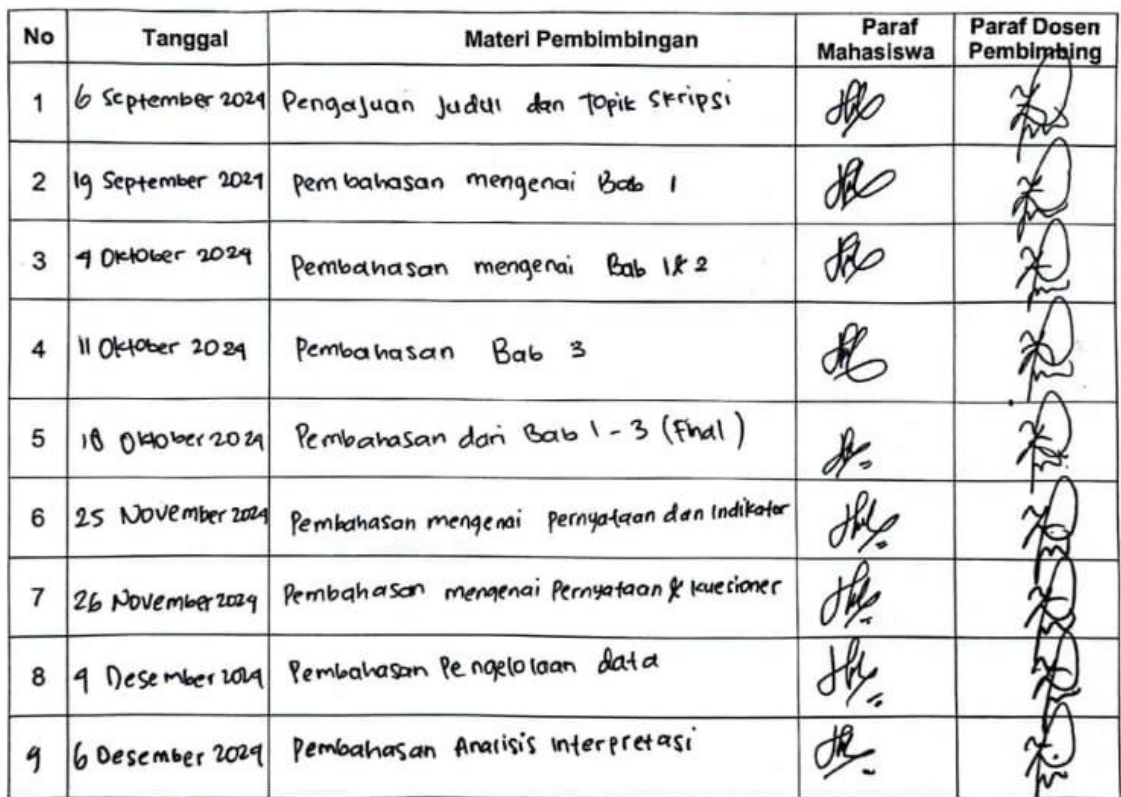 No Tanggal Materi Pembimbingan Paraf Mahasiswa Paraf Dosen Pembimbing
1 6 September 2024 Pengajuan Judul dan Topik Skripsi
2 19 September 2024 Pembahasan mengenai Bab 1
3 4 Oktober 2024 Pembahasan mengenai Bab 1 & 2
4 11 Oktober 2024 Pembahasan Bab 3
5 18 Oktober 2024 Pembahasan dari Bab 1 - 3 (Final)
6 25 November 2024 Pembahasan mengenai Pernyataan dan Indikator
7 26 November 2024 Pembahasan mengenai Pernyataan & Kuesioner
8 4 Desember 2024 Pembahasan Pengelolaan data
9 6 Desember 2024 Pembahasan Analisis Interpretasi